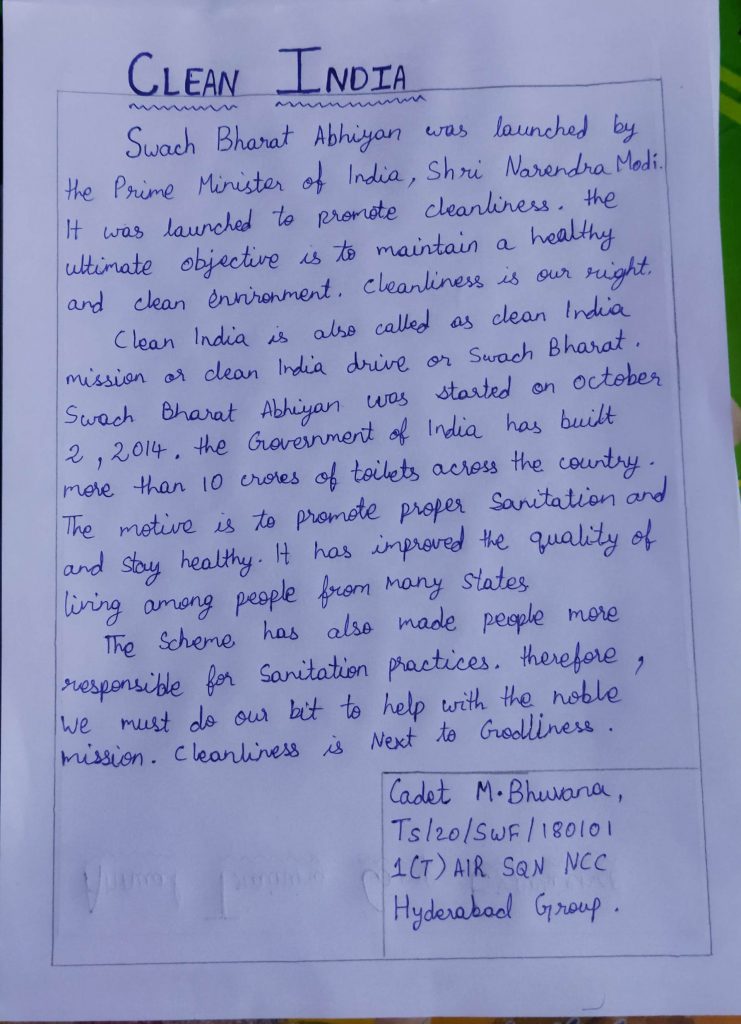 CLEAN INDIA
Swach Bharat Abhiyan was launched by
the Prime Minister of India, Shri Narendra Modi.
It was launched to promote cleanliness. the
ultimate objective is to maintain a healthy
and clean environment. Cleanliness is our right.
Clean India is also called as clean India
mission or clean India drive or Swach Bharat.
Swach Bharat Abhiyan was started on October
2, 2014. the Government of India has built
more than 10 crores of toilets across the country.
The motive is to promote proper Sanitation and
and stay healthy. It has improved the quality of
living among people from many states
The Scheme has also made people more
responsible for Sanitation practices. therefore,
we must do our bit to help with the noble
mission. Cleanliness is Next to Godliness.
Cadet M. Bhuvana,
TS/20/SWF/180101
1(T) AIR SQN NCC
Hyderabad Group.